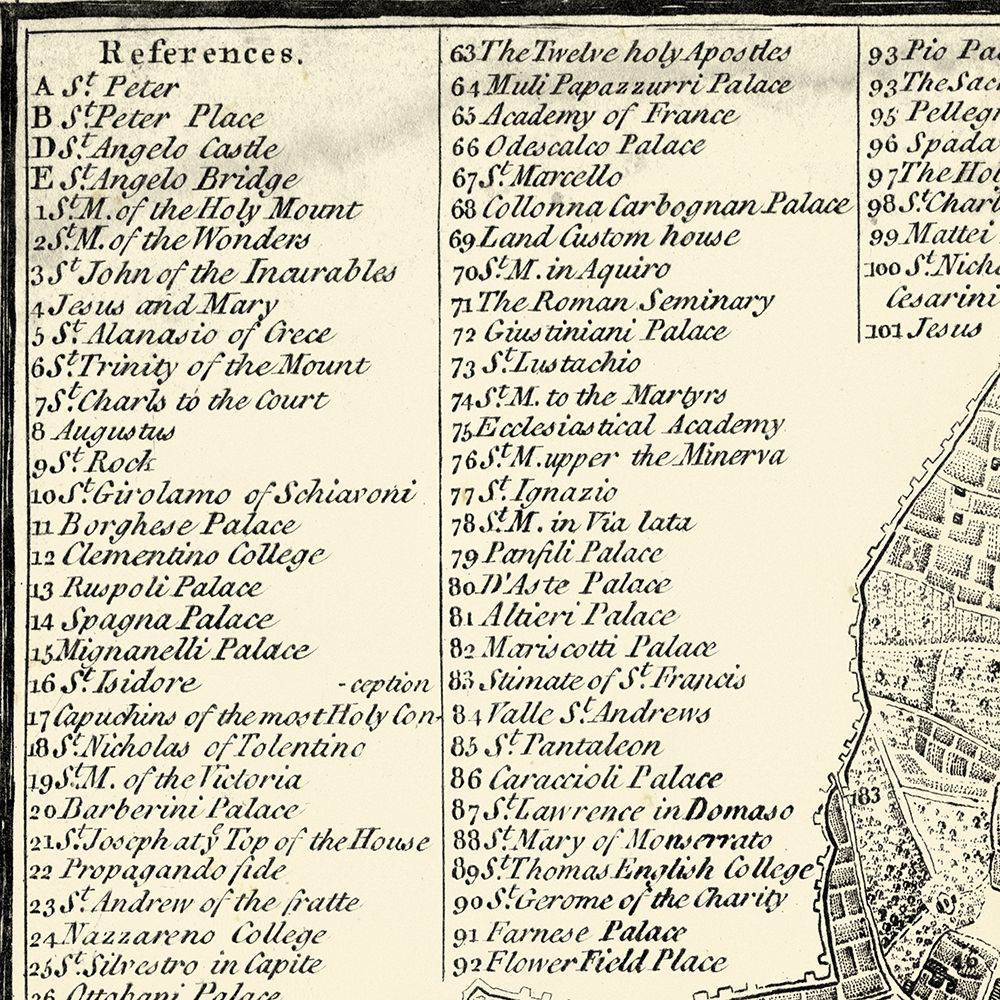 References.
A St. Peter
B St. Peter Place
D St. Angelo Castle
E St. Angelo Bridge
1 St. M. of the Holy Mount
2 St. M. of the Wonders
3 St John of the Incurables
4 Jesus and Mary
5 St. Alanasio of Grece
6 St. Trinity of the Mount
7 St. Charls to the Court
8 Augustus
9 St. Rock
10 St. Girolamo of Schiavoni
11 Borghese Palace
12 Clementino College
13 Ruspoli Palace
14 Spagna Palace
15 Mignanelli Palace
16 St. Isidore -ception
17 Capuchins of the most Holy Con-
18 St. Nicholas of Tolentino
19 St. M. of the Victoria
20 Barberini Palace
21 St. Joseph at ye Top of the House
22 Propagando fide
23 St. Andrew of the fratte
24 Nazzareno College
25 St. Silvestro in Capite
26 Ottobani Palace
63 The Twelve holy Apostles
64 Muli Papazzurri Palace
65 Academy of France
66 Odescalco Palace
67 St. Marcello
68 Collonna Carbognan Palace
69 Land Custom house
70 St. M. in Aquiro
71 The Roman Seminary
72 Giustiniani Palace
73 St. Lustachio
74 St. M. to the Martyrs
75 Ecclesiastical Academy
76 St. M. upper the Minerva
77 St. Ignazio
78 St. M. in Via lata
79 Panfili Palace
80 D'Aste Palace
81 Altieri Palace
82 Mariscotti Palace
83 Stimate of St. Francis
84 Valle St. Andrews
85 St. Pantaleon
86 Caraccioli Palace
87 St. Lawrence in Domaso
88 St. Mary of Monserrato
89 St. Thomas English College
90 St. Gerome of the Charity
91 Farnese Palace
92 Flower Field Place
93 Pio Pa
93 The Sac
95 Pellegr
96 Spada
97 The Hol
98 St. Charl
99 Mattei
100 St. Nich
Cesarini
101 Jesus
183
46